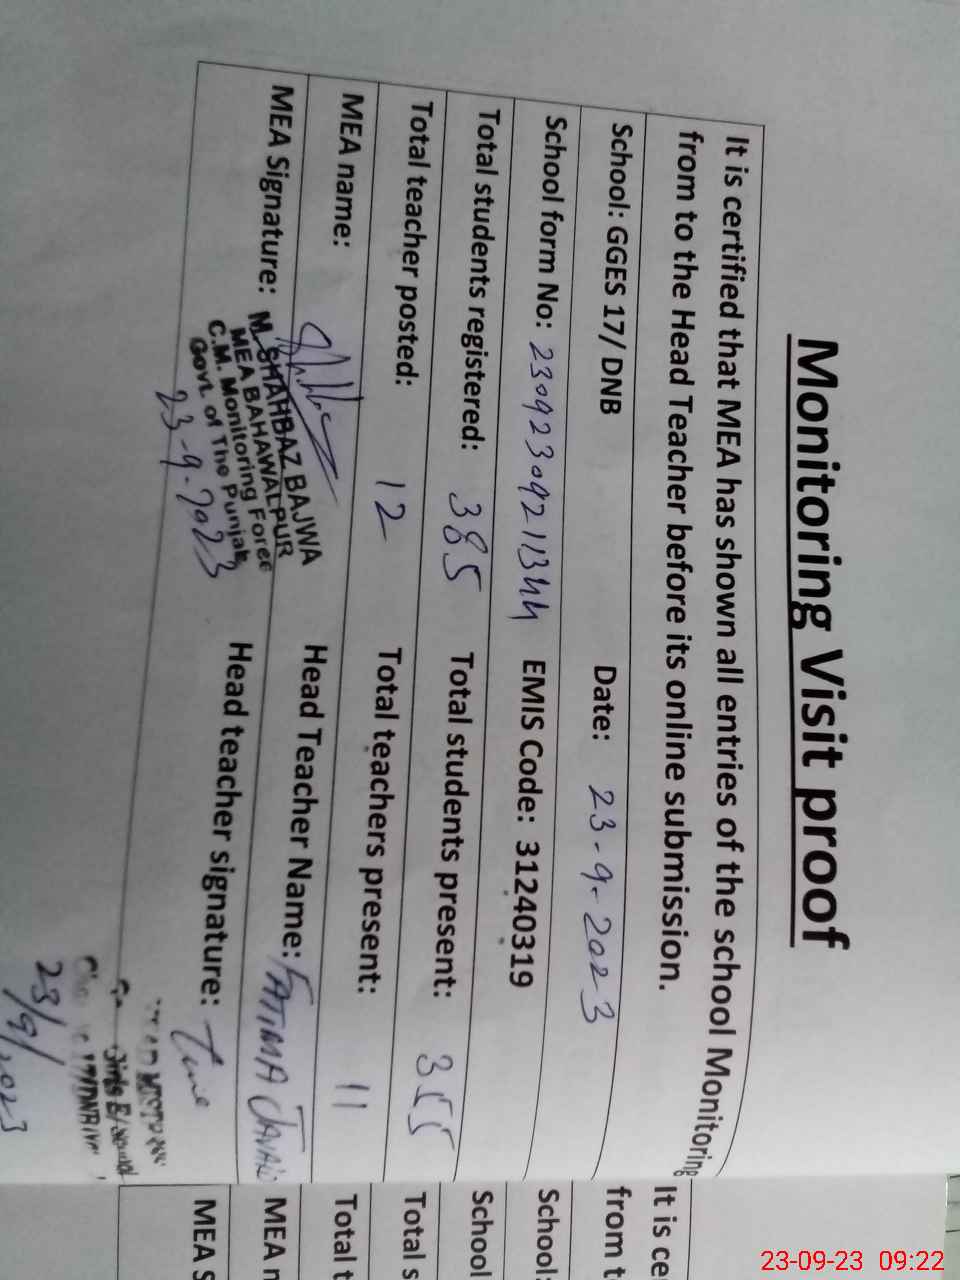 Monitoring Visit proof
It is certified that MEA has shown all entries of the school Monitoring
from to the Head Teacher before its online submission.
School: GGES 17/ DNB Date: 23-9-2023
School form No: EMIS Code: 31240319
Total students registered: 385 Total students present: 355
Total teacher posted: 12 Total teachers present: 11
MEA name: Head Teacher Name: FATIMA JAVAID
MEA Signature: Head teacher signature:
M. SHAHBAZ BAJWA
MEA BAHAWALPUR
C.M. Monitoring Force
Govt. of The Punjab
23-9-2023
Girls E/
17/DNB
23/9/2023
It is ce
from t
School:
School
Total s
Total t
MEA n
MEA S
23-09-23 09:22